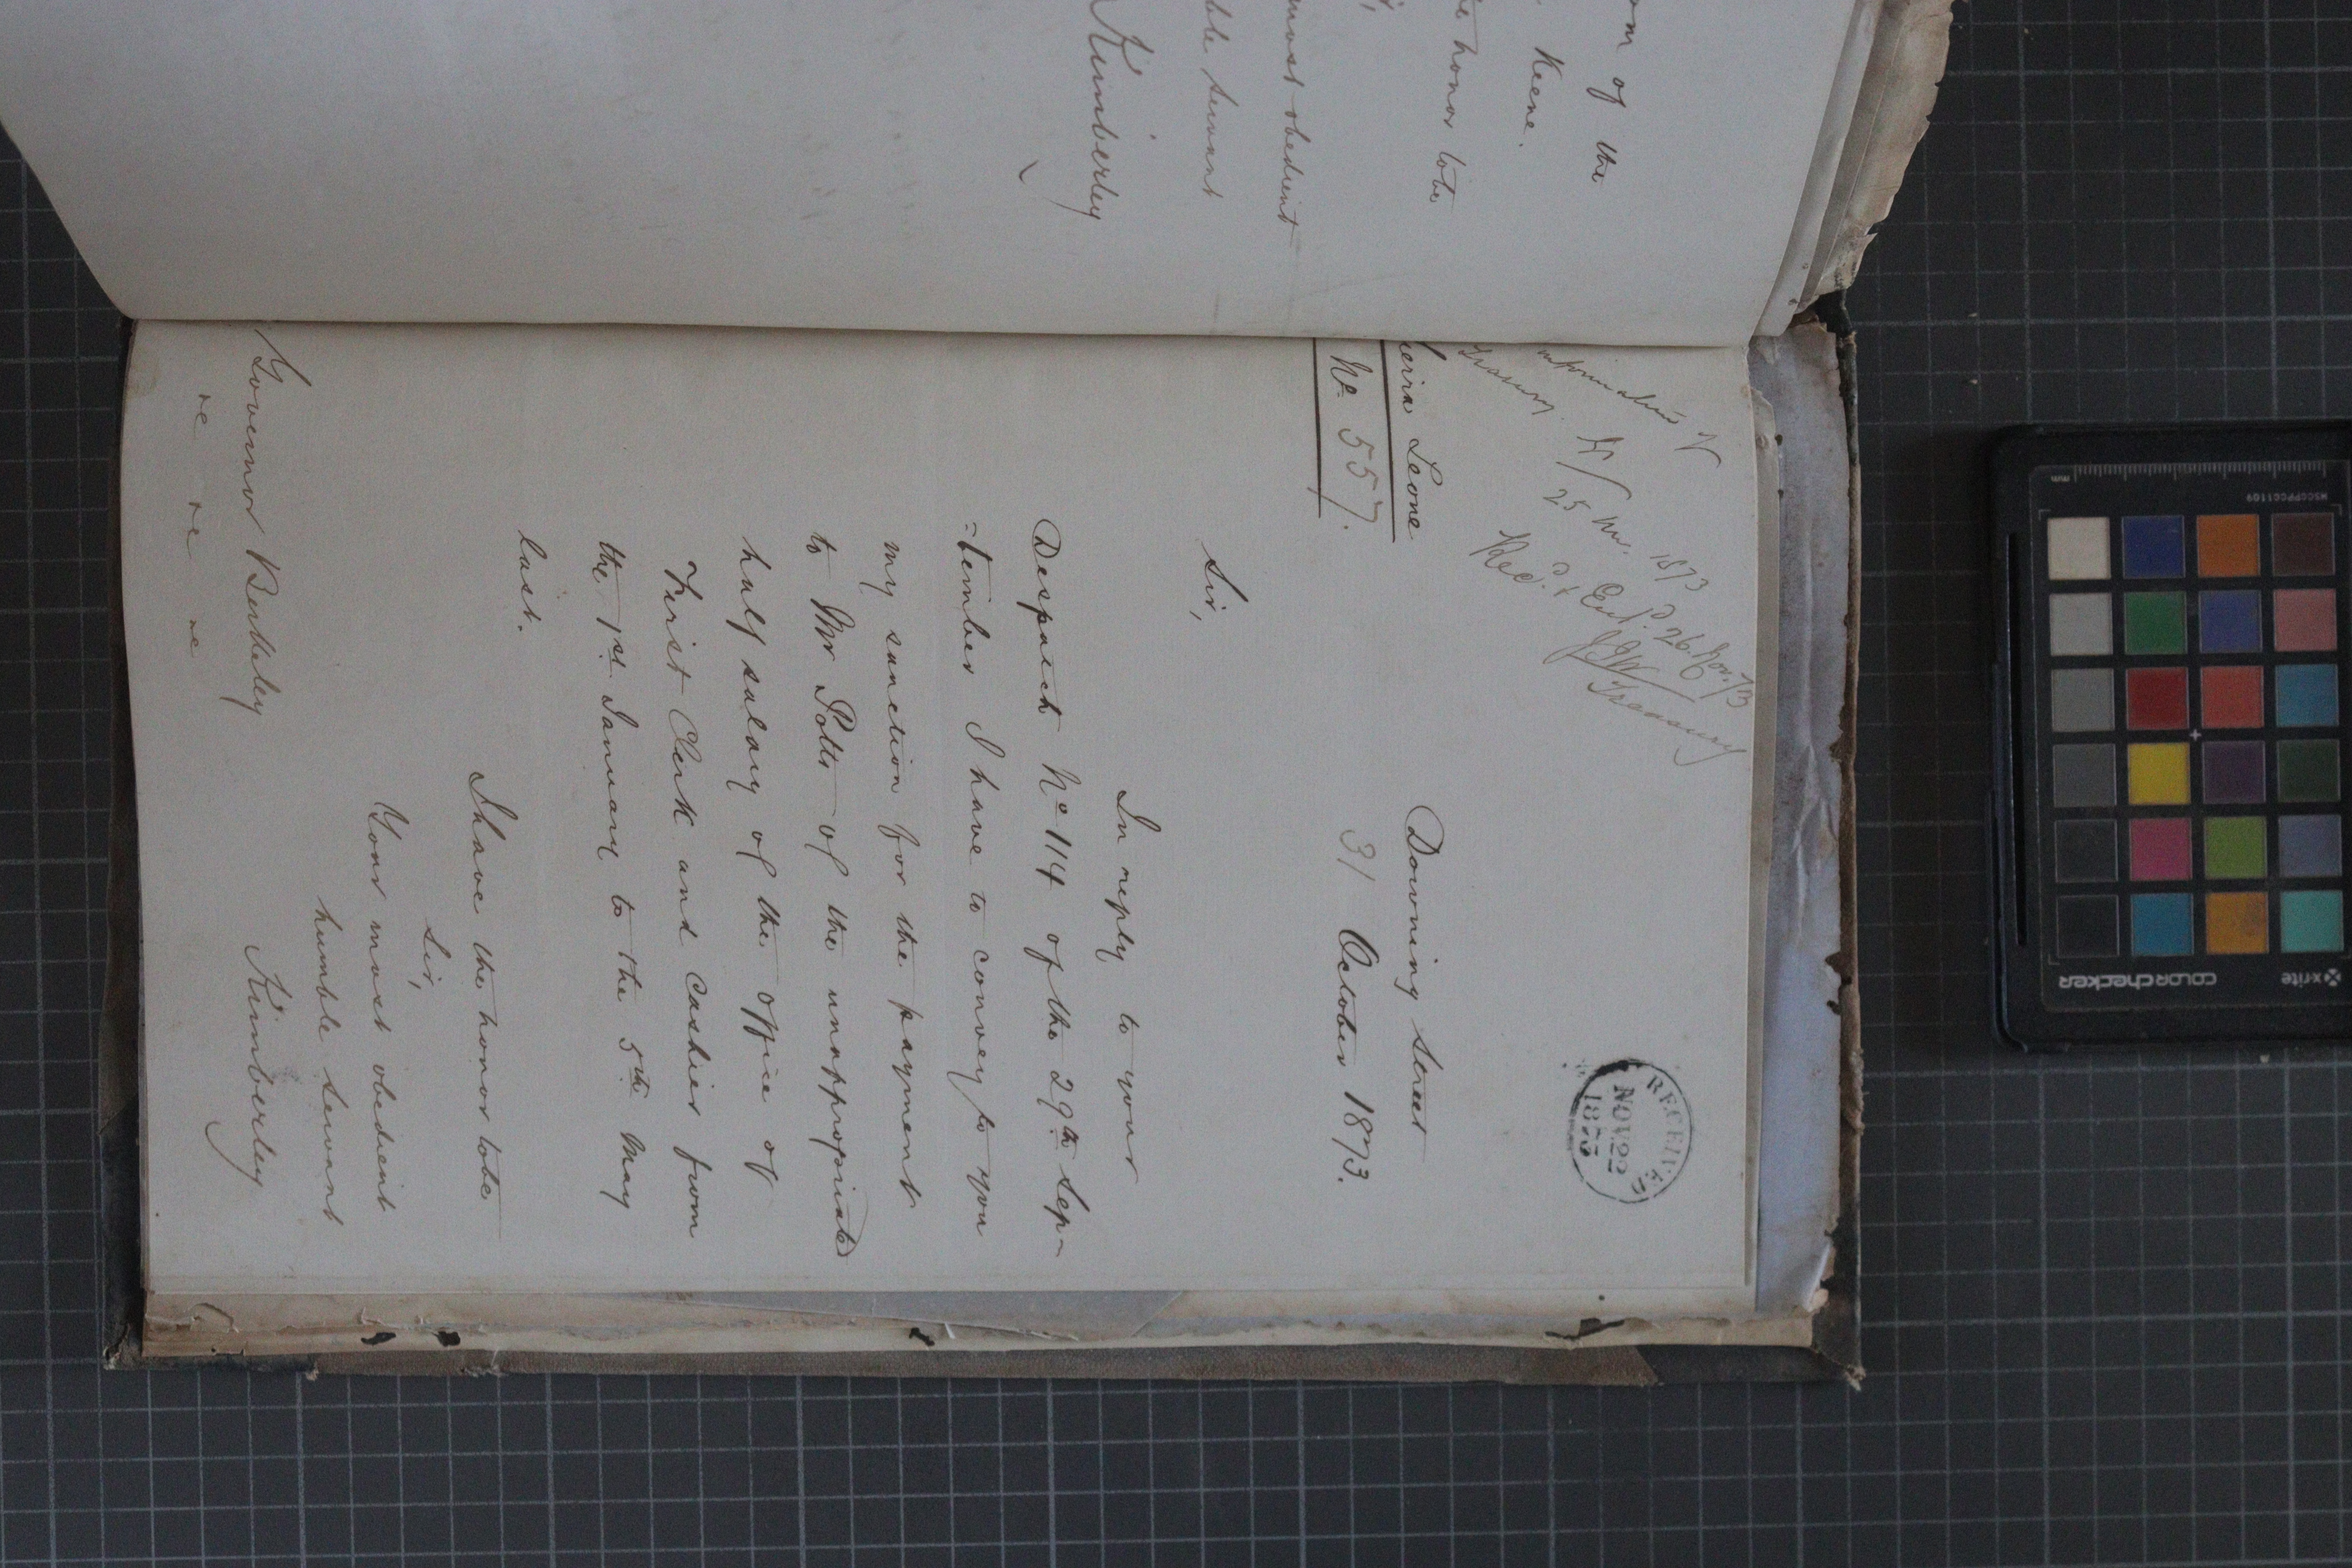 om of the
Keene.
e honor to be
most obedient
ble servant
Kimberley
RECEIVED
NOV 22
1873
25 Nov. 1873
Rec.d & Ent.d 26 Nov. 73
Treasury
ierra Leone
No 557.
Downing Street
31 October 1873.
Sir,
In reply to your
Despatch No 114 of the 29th Sep-
=tember I have to convey to you
my sanction for the payment
to Mr Potts of the unappropriated
half salary of the office of
First Clerk and Cashier from
the 1st January to the 5th May
last.
I have the honor to be
Sir,
Your most obedient
humble servant
Kimberley
Governor Berkeley
x-rite
colorchecker
MSCCPPCC1109
mm